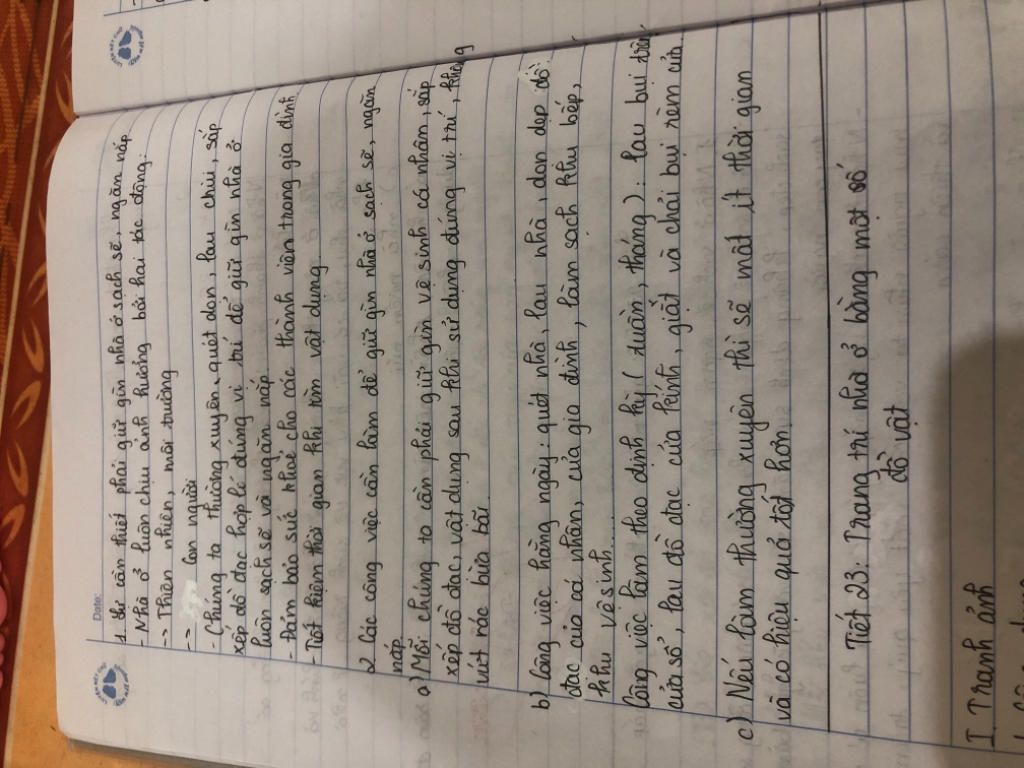 Date:
1. Sự cần thiết phải giữ gìn nhà ở sạch sẽ, ngăn nắp
- Nhà ở luôn chịu ảnh hưởng bởi hai tác động:
-> Thiên nhiên, môi trường
-> Con người
- Chúng ta thường xuyên quét dọn, lau chùi, sắp
xếp đồ đạc hợp lí đúng vị trí để giữ gìn nhà ở
luôn sạch sẽ và ngăn nắp
- Đảm bảo sức khoẻ cho các thành viên trong gia đình
- Tiết kiệm thời gian khi tìm vật dụng
2 Các công việc cần làm để giữ gìn nhà ở sạch sẽ, ngăn
nắp
a) Mỗi chúng ta cần phải giữ gìn vệ sinh cá nhân, sắp
xếp đồ đạc, vật dụng sau khi sử dụng đúng vị trí, không
vứt rác bừa bãi
b) Công việc hằng ngày: quét nhà, lau nhà, dọn dẹp đồ
đạc của cá nhân, của gia đình, làm sạch khu bếp,
khu vệ sinh...
Công việc làm theo định kỳ (tuần, tháng): lau bụi trên
cửa sổ, lau đồ đạc của kính, giặt và chải bụi rèm cửa
c) Nếu làm thường xuyên thì sẽ mất ít thời gian
và có hiệu quả tốt hơn
Tiết 23: Trang trí nhà ở bằng một số
đồ vật
I Tranh ảnh